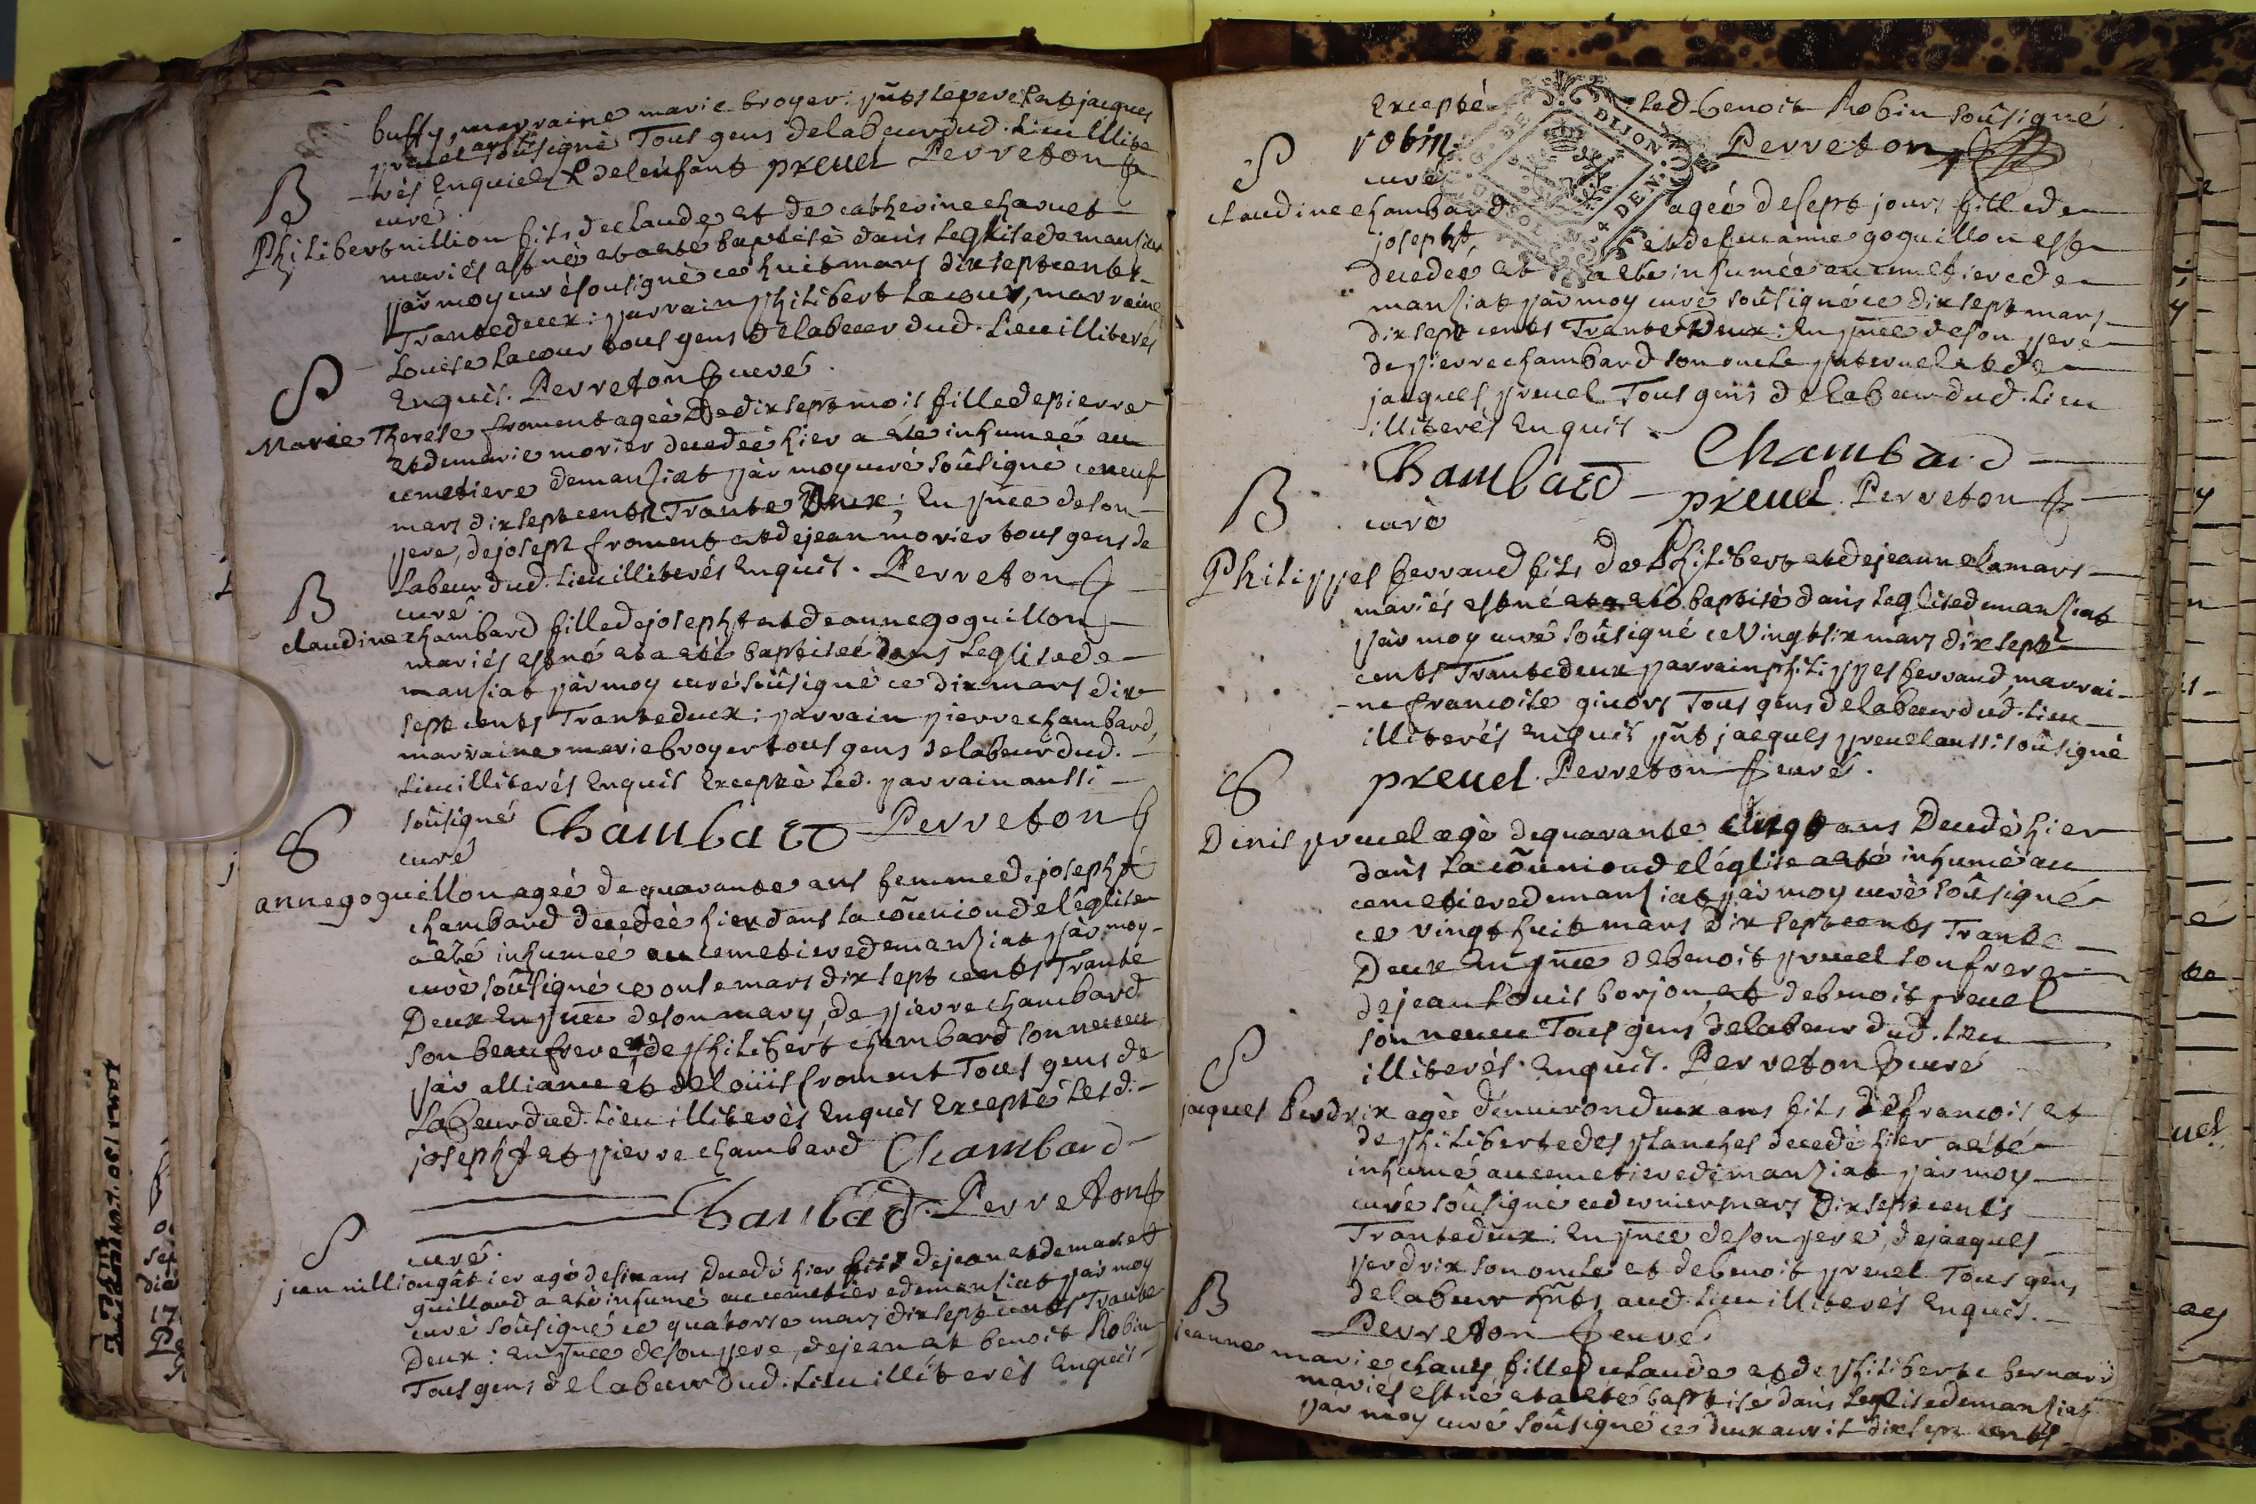 buffy, marraine marie broyer: pñts le pere & et jacques
preuel aussi soûsigné Tous gens de labeur dud. Lieu illite
-rés Enquis & de l'enfant preuel Perreton
B
curé.
Philibert nillion fils de claude et de catherine charvet
mariés est né et a eté baptisé dans L'eglise de mansiat
par moy curé soûsigné ce huit mars dix sept cents
Trante deux: parrain philibert Lacour, marraine
Louise Lacour tous gens de labeur dud. Lieu illiterés
Enquis. Perreton curé.
S
Marie Therese froment ageé De dix sept mois fille de pierre
et de marie morier decedeé hier a eté inhumeé au
cemetiere de mansiat par moy curé soûsigné ce neuf
mars dix sept cents Trante Deux; En pnce de son
pere, de joseph froment et de jean morier tous gens de
Labeur dud. Lieu illiterés Enquis. Perreton
B
curé.
claudine chambard fille de josepht et de anne goguillon
mariés est né et a eté baptiseé dans L'eglise de
mansiat par moy curé soûsigné ce dix mars dix
sept cents Trante deux: parrain pierre chambard,
marraine marie broyer tous gens de labeur dud.
Lieu illiterés Enquis Excepté Led. parrain aussi
soûsigné Chambard Perreton
S
curé
anne goguillon ageé de quarante ans femme de josepht
chambard decedeé hier dans la cõunion de l'eglise
a eté inhumeé au cemetiere de mansiat par moy
curé soûsigné ce onse mars dix sept cents Trante
Deux En pnce de son mary, de pierre chambard
son beaufrere, de philibert chambard son neueu
par alliance et de loüis froment Tous gens de
Labeur dud. Lieu illiterés Enquis Excepté Lesd.
josepht et pierre chambard Chambard
Chambard. Perreton
S
curé.
jean nillion gâtier agé de six ans Decedé hier fils de jean et de mariet
guilland a eté inhumé au cemetiere de mansiat par moy
curé soûsigné ce quatorse mars dix sept cents Trante
Deux: En pnce de son pere, de jean et benoit Robin
Tous gens de labeur dud. Lieu illiterés Enquis
Excepté Led. benoit Robin soûsigné
robin Perreton
S
curé
claudine chambard ageé de sept jours fille de
josepht et de fue anne goguillon est
decedeé et a eté inhumeé au cemetiere de
mansiat par moy curé soûsigné ce dix sept mars
dix sept cents Trante Deux: En pnce de son pere
de pierre chambard son oncle paternel et de
jacques preuel Tous gens de labeur dud. Lieu
illiterés Enquis. Chambard
Chambard preuel. Perreton
B
curé
Philippes ferraud fils de Philibert et de jeanne lamars
mariés est né et a eté baptisé dans L'eglise de mansiat
par moy curé soûsigné ce Vingt six mars dix sept
cents Trante deux parrain philippes ferraud, marrai-
-ne francoise giuors Tous gens de labeur dud. Lieu
illiterés enquis pñt jacques preuel aussi soûsigné
preuel. Perreton curé.
S
Denis preuel agé de quarante cinq ans Decedé hier
dans La cõunion de l'église a eté inhumé au
cemetiere de mansiat par moy curé soûsigné
ce vingt huit mars dix sept cents Trante
Deux En pnce de benoit preuel son frere
de jean Louis borjon et de benoit preuel
son neueu Tous gens de labeur dud. Lieu
illiterés Enquis. Perreton curé
S
jacques Perdrix agé d'enuiron deux ans fils de francois et
de philiberte des planches decedé hier a eté
inhumé au cemetiere de mansiat par moy
curé soûsigné ce dernier mars dix sept cents
Trante deux: En pnce de son pere, de jacques
perdrix son oncle et de benoit preuel Tous gens
de labeur hñts aud. Lieu illiterés Enquis.
B
Perreton curé.
jeanne marie chaut fille de claude et de philiberte bernard
mariés est né et a eté baptisé dans L'eglise de mansiat
par moy curé soûsigné ce deux auril dix sept cents
DE DIJON
GEN